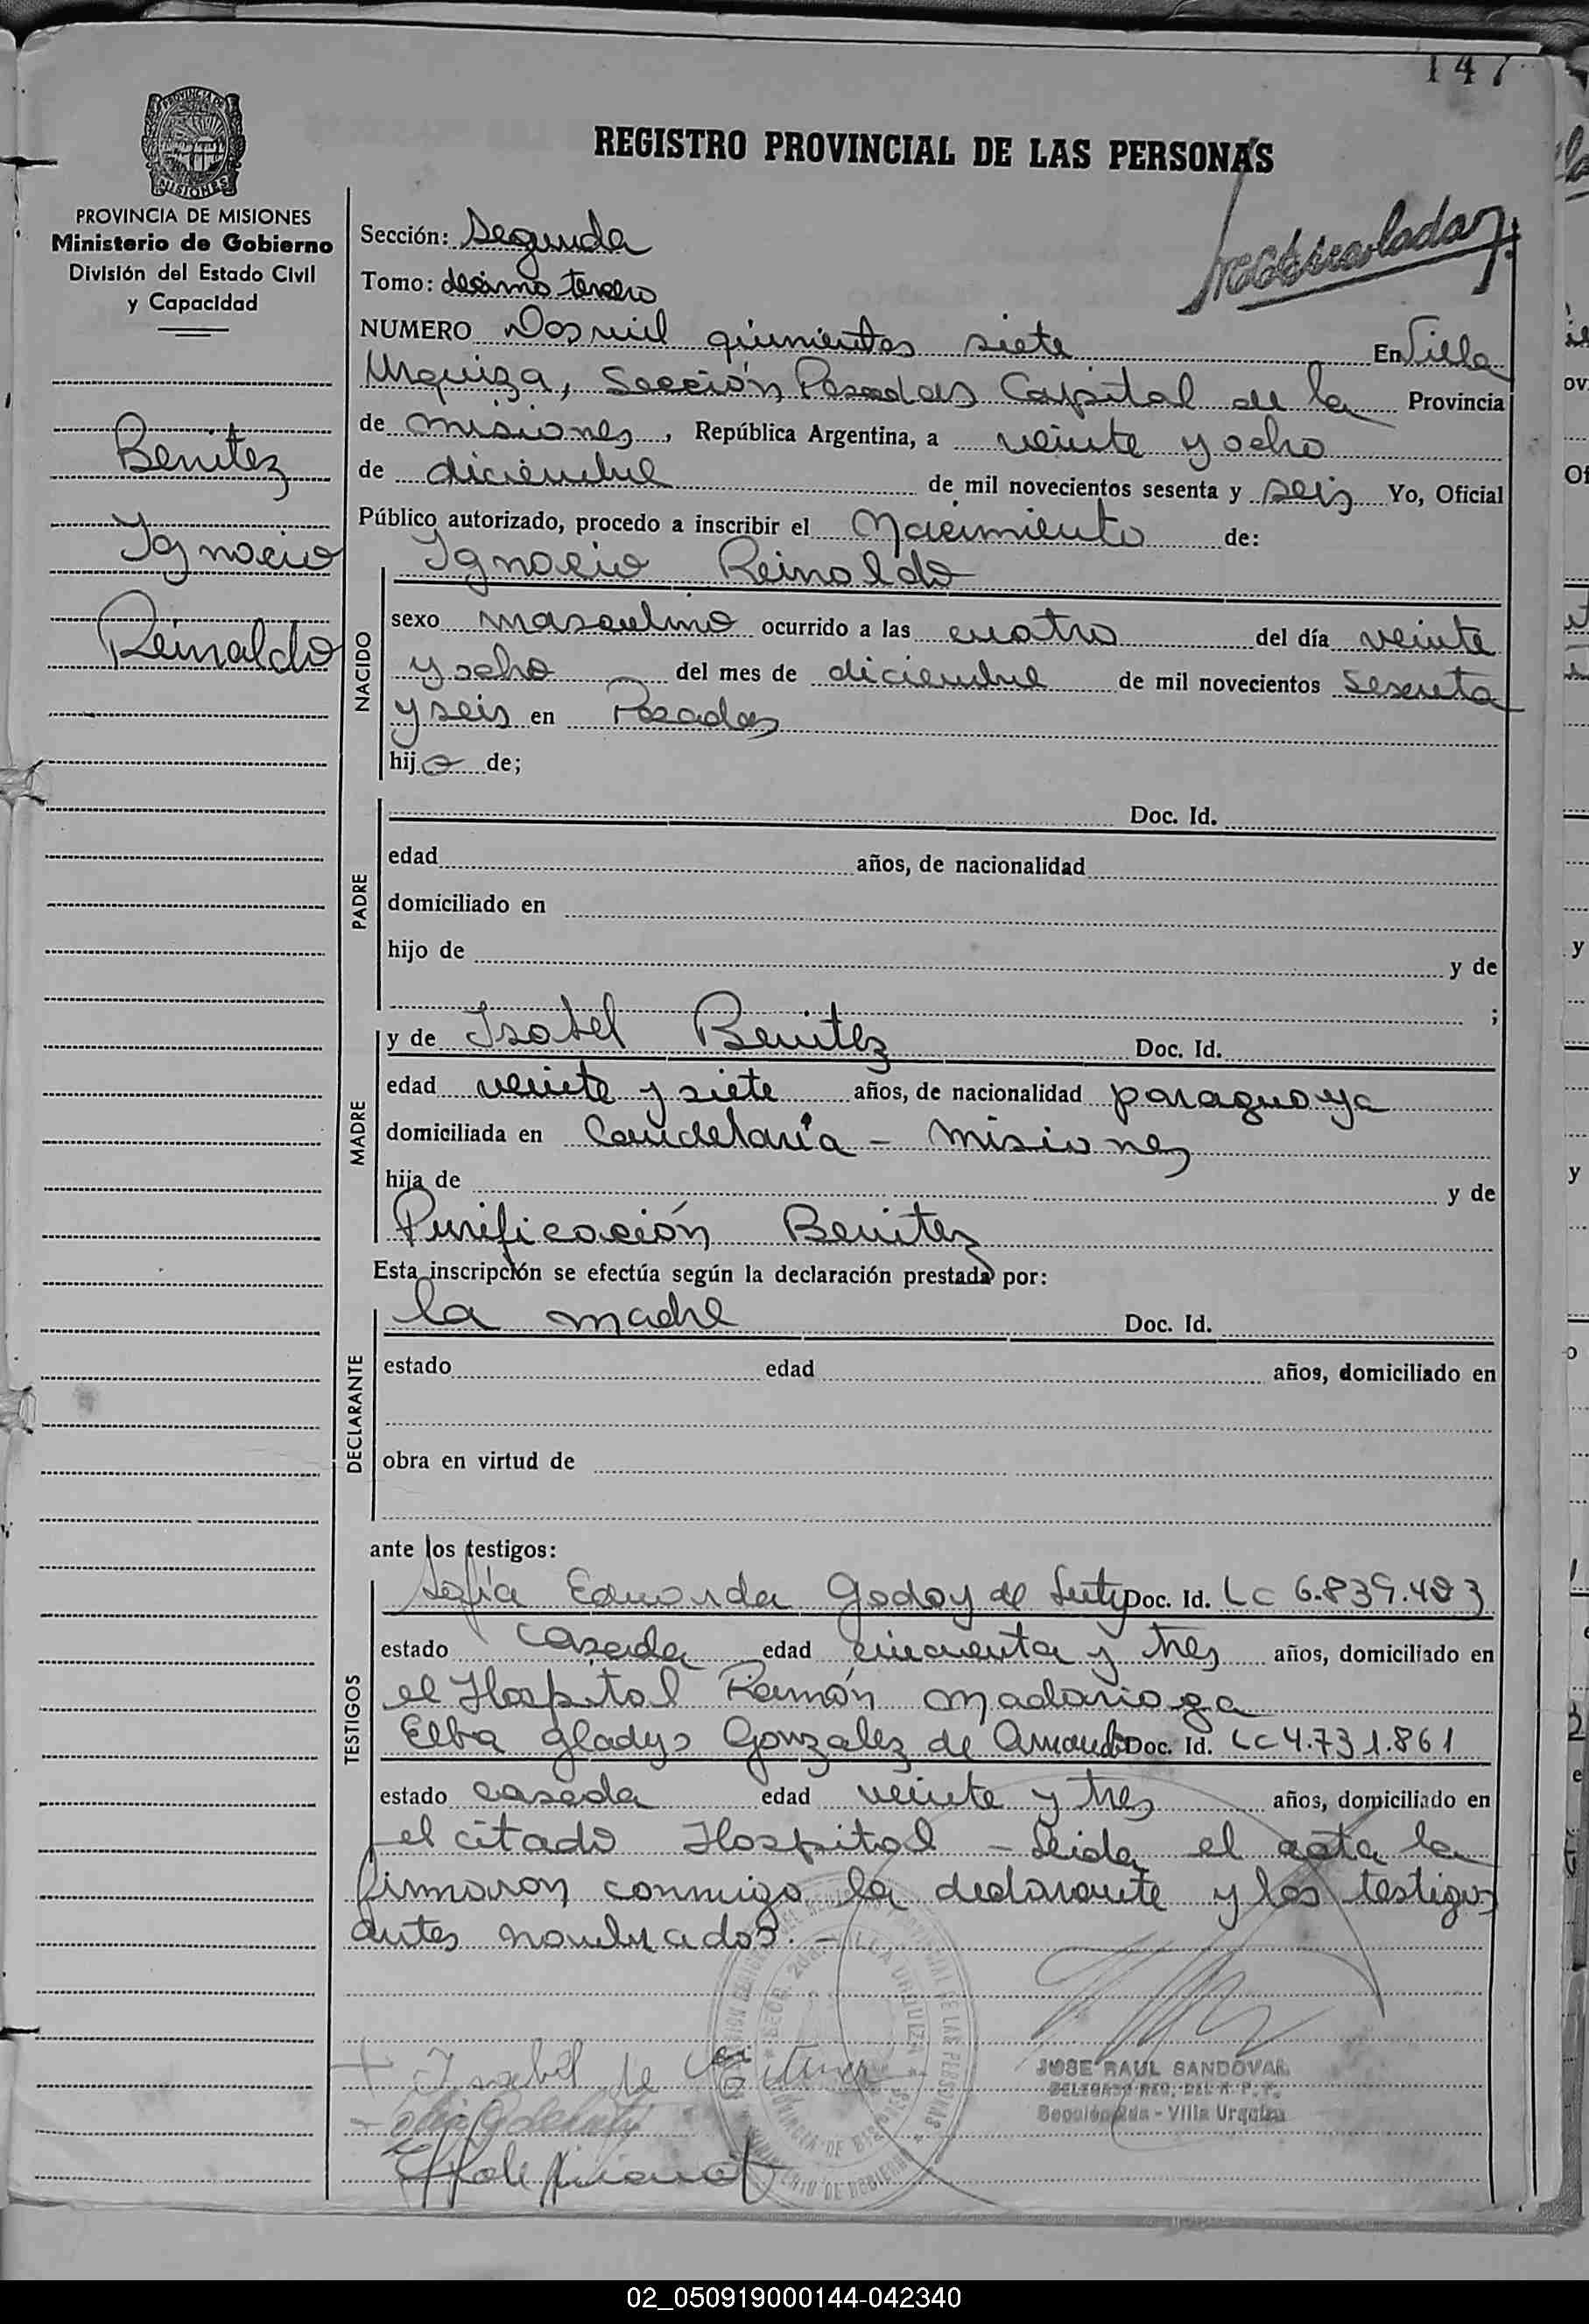 147
PROVINCIA DE MISIONES
PROVINCIA DE MISIONES
Ministerio de Gobierno
División del Estado Civil
y Capacidad
Benitez
Ignacio
Reinaldo
REGISTRO PROVINCIAL DE LAS PERSONAS
Sección: Segunda
Tomo: décimo tercero
NUMERO Dos mil quinientos siete En Villa
Urquiza, Sección Posadas Capital de la Provincia
de Misiones, República Argentina, a veinte y ocho
de diciembre de mil novecientos sesenta y seis Yo, Oficial
Público autorizado, procedo a inscribir el Nacimiento de:
NACIDO
Ignacio Reinaldo
sexo masculino ocurrido a las cuatro del día veinte
y ocho del mes de diciembre de mil novecientos sesenta
y seis en Posadas
hijo de;
PADRE
Doc. Id.
edad años, de nacionalidad
domiciliado en
hijo de y de
;
MADRE
y de Isabel Benitez Doc. Id.
edad veinte y siete años, de nacionalidad paraguaya
domiciliada en Candelaria - Misiones
hija de y de
Purificación Benitez
Esta inscripción se efectúa según la declaración prestada por:
DECLARANTE
la madre Doc. Id.
estado edad años, domiciliado en
obra en virtud de
ante los testigos:
TESTIGOS
Sofía Eduarda Godoy de Doc. Id. LC 6.839.483
estado casada edad cincuenta y tres años, domiciliado en
el Hospital Ramón Madariaga
Elba Gladys Gonzalez de Doc. Id. LC 4.731.861
estado casada edad veinte y tres años, domiciliado en
el citado Hospital - Leida el acta la
firmaron conmigo la declarante y los testigos
antes nombrados. -
Isabel de
JOSE RAUL SANDOVAL
DELEGADO REG. DEL R. P. P.
Sección 2da - Villa Urquiza
02_050919000144-042340